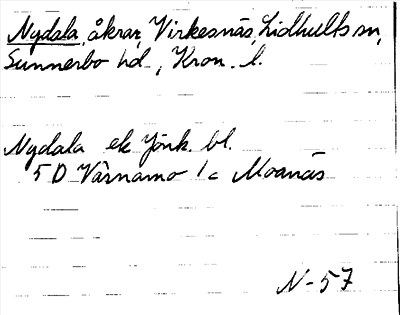 Nydala, åkrar, Virkesnäs, Lidhults sn,
Sunnerbo hd., Kron. l.
Nydala ek Jönk. bl.
5 D Värnamo 1c Moanäs
N-57